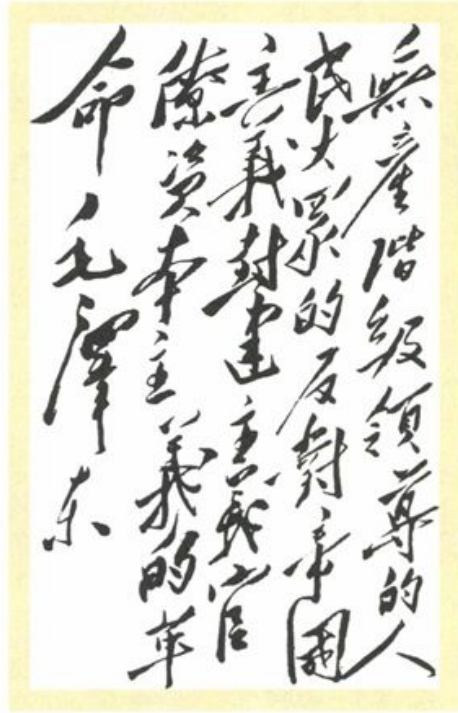 無產階級領導的人
民大眾的反對帝國
主義封建主義官
僚資本主義的革
命毛澤东